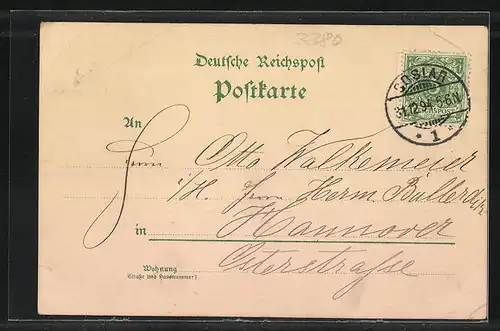 3380
Deutsche Reichspost
Postkarte
GOSLAR
31.12.94. 5-6N
* 1 *
An
Herrn Otto Walkemeier
i/H. Herrn Herm. Ballerdiek
in Hannover
Wohnung
(Straße und Hausnummer)
Osterstrasse